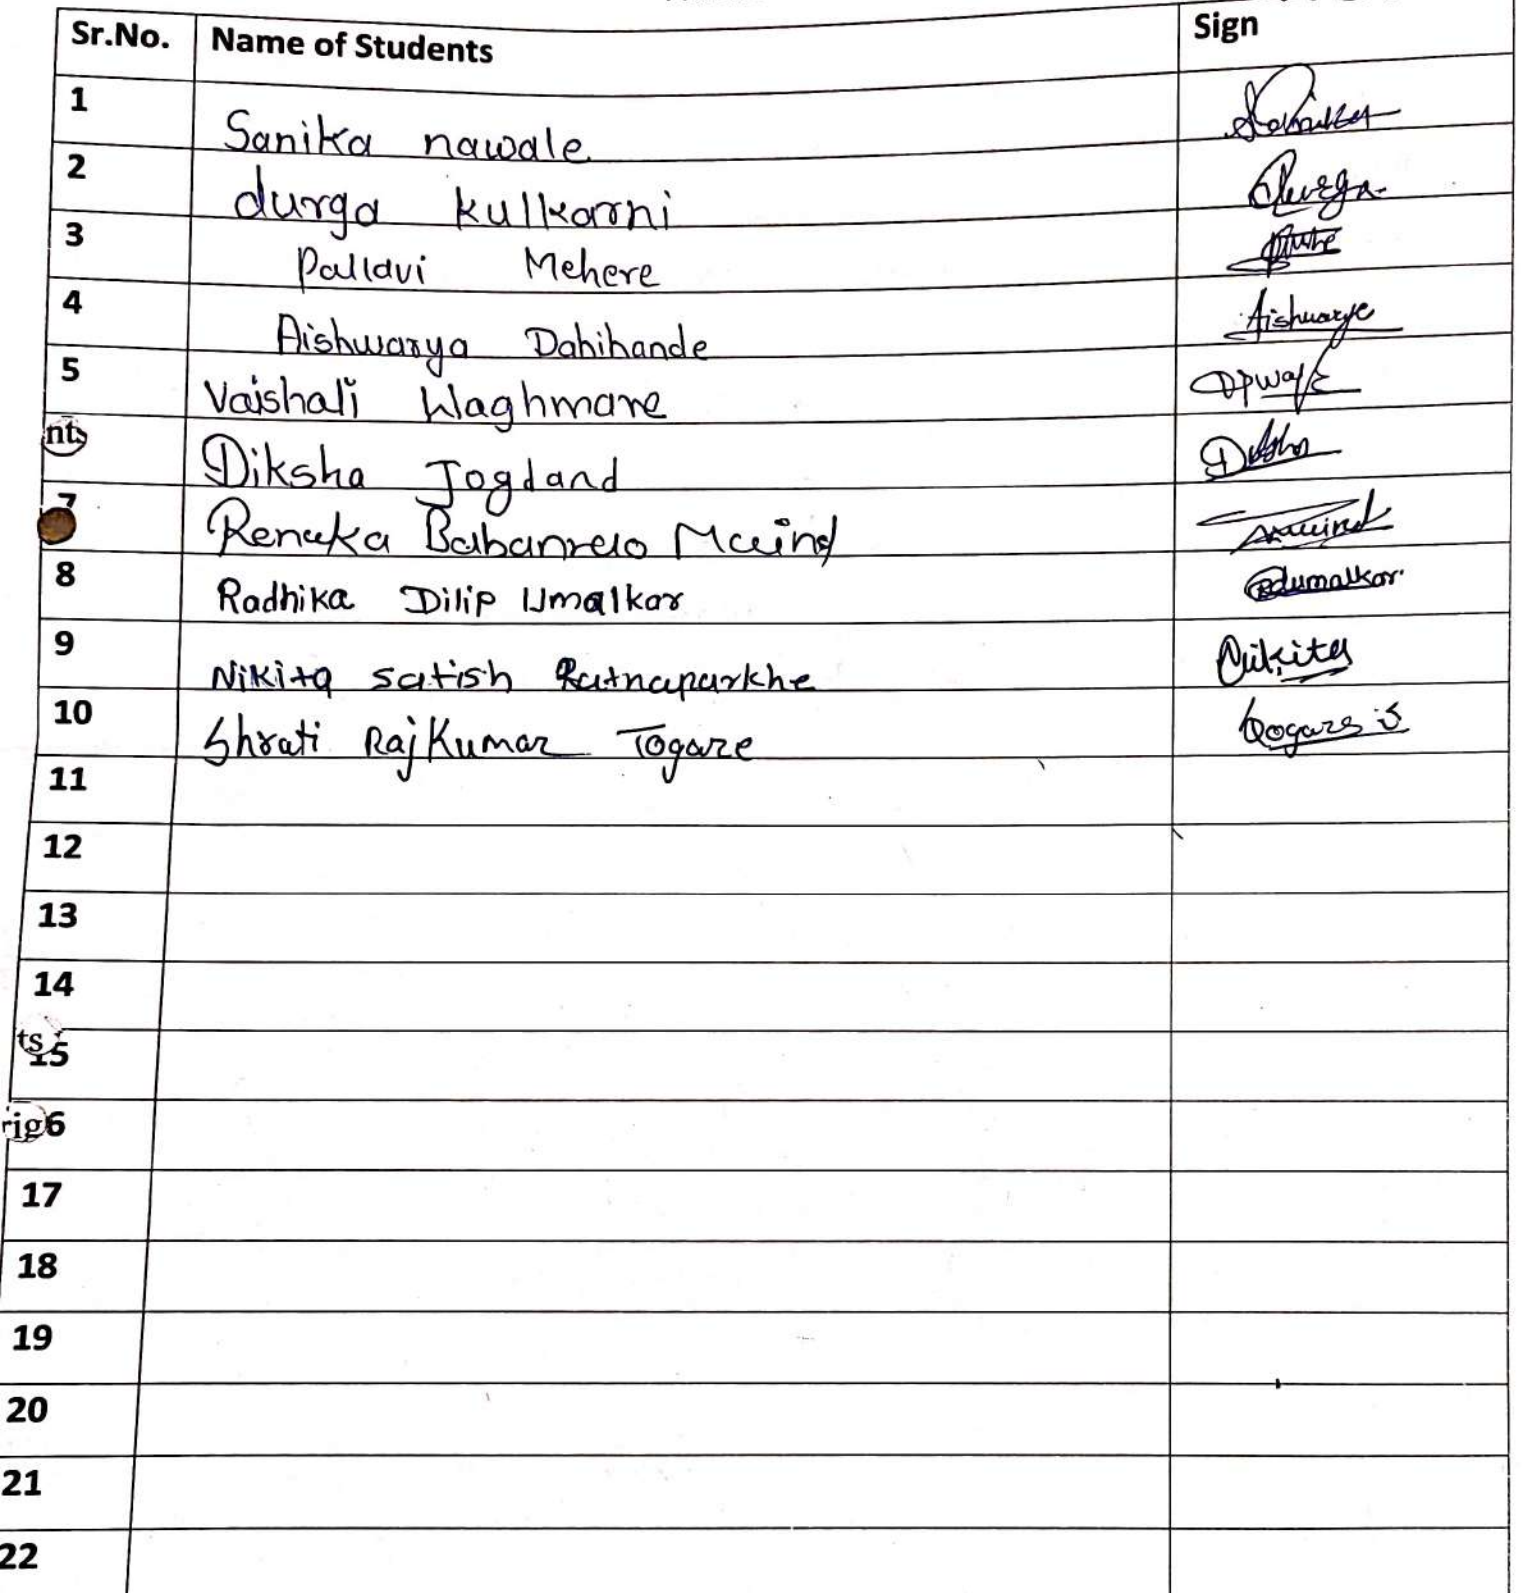 Sr.No. Name of Students Sign
1 Sanika nawale
2 durga kulkarni Durga
3 Pallavi Mehere
4 Aishwarya Dahihande Aishwarya
5 Vaishali Waghmare
nts Diksha Jogdand Diksha
7 Renuka Babanrao Maind
8 Radhika Dilip Umalkar Rdumalkar
9 Nikita satish Ratnaparkhe Nikita
10 Shrati RajKumar Togare
11
12
13
14
ts 15
rig6
17
18
19
20
21
22